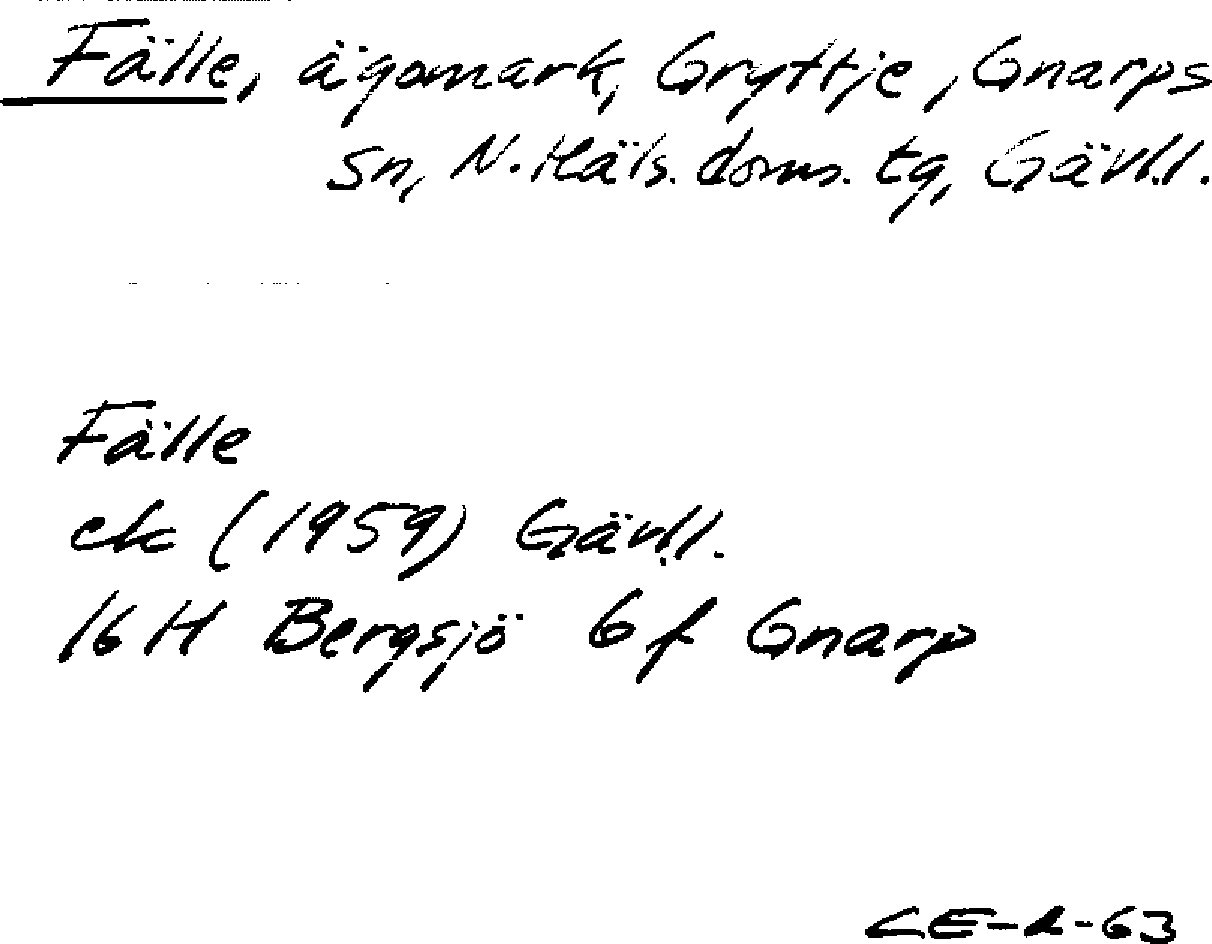 Fälle, ägomark, Gryttje, Gnarps
sn, N. Häls. doms. tg, Gävl.l.
Fälle
ek (1959) Gävl.l.
16 H Bergsjö 6 f Gnarp